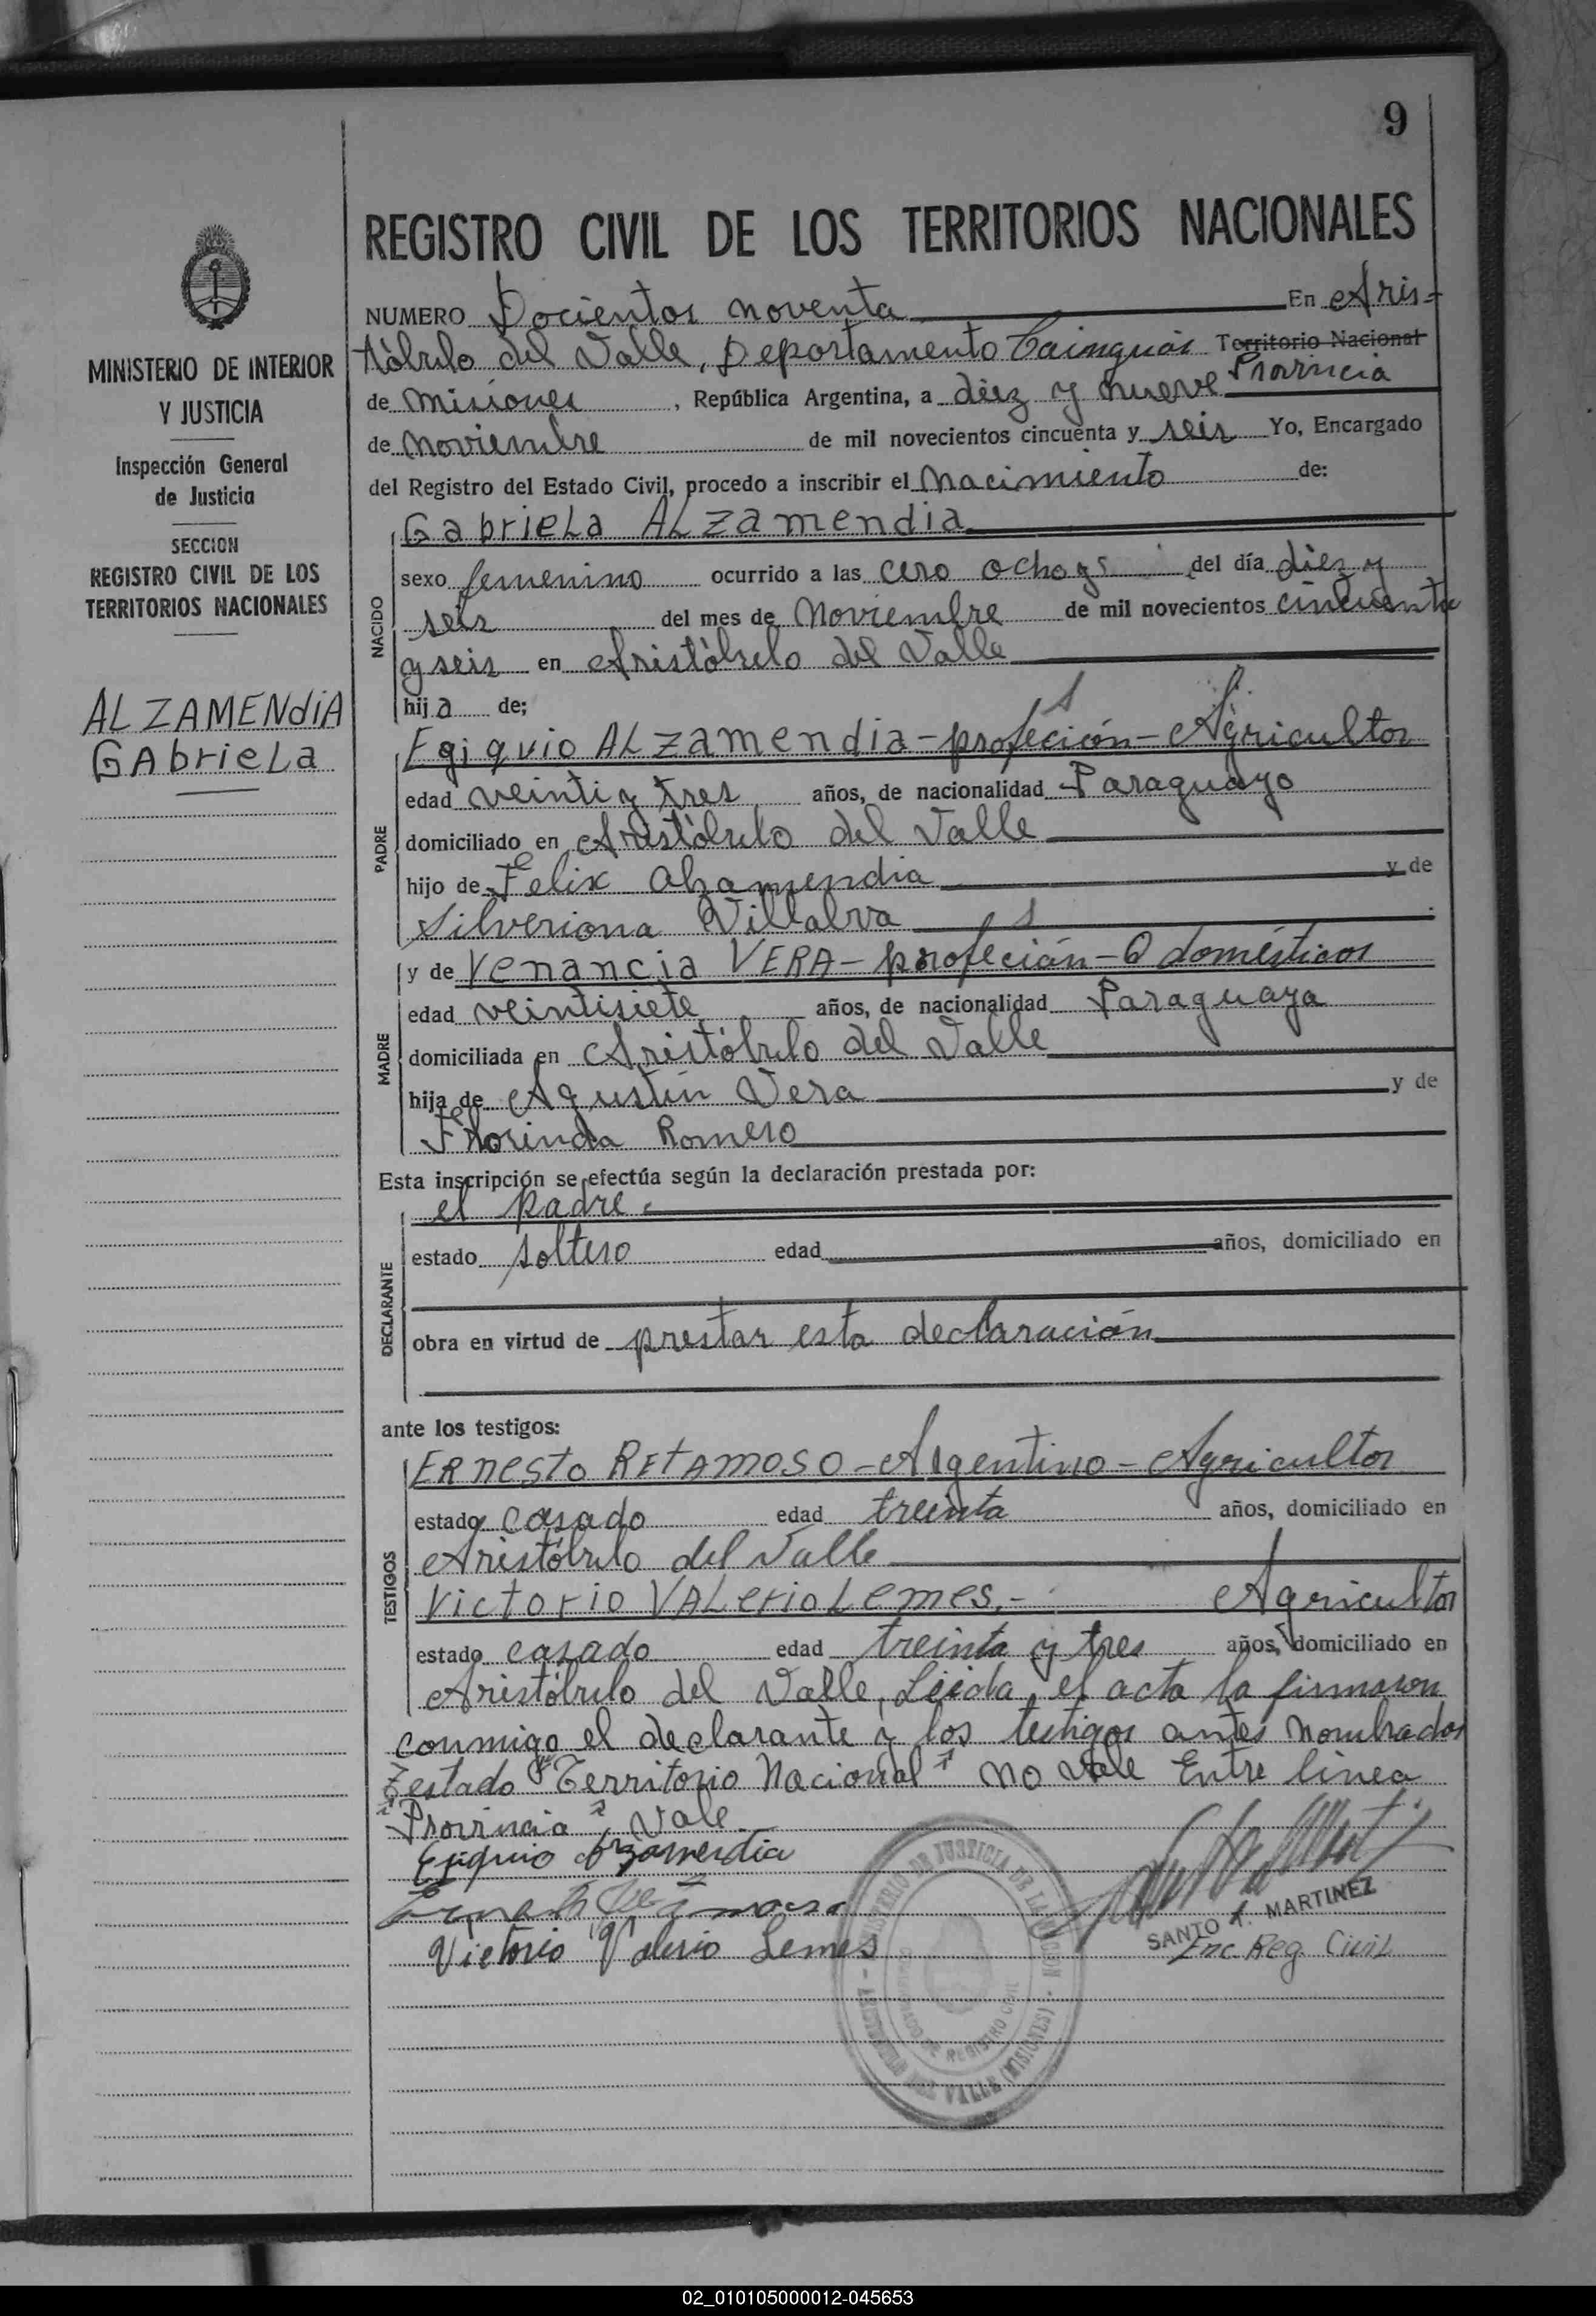 9
REGISTRO CIVIL DE LOS TERRITORIOS NACIONALES
MINISTERIO DE INTERIOR
Y JUSTICIA
Inspección General
de Justicia
SECCION
REGISTRO CIVIL DE LOS
TERRITORIOS NACIONALES
ALZAMENdiA
GAbrieLa
NUMERO Docientos noventa En Aris-
tóbulo del Valle, Departamento Cainguás Territorio Nacional
Provincia
de Misiones, República Argentina, a diez y nueve
de Noviembre de mil novecientos cincuenta y seis Yo, Encargado
del Registro del Estado Civil, procedo a inscribir el Nacimiento de:
NACIDO
GabrieLa ALzamendia
sexo femenino ocurrido a las cero ocho gs del día diez y
seis del mes de Noviembre de mil novecientos cincuenta
y seis en Aristóbulo del Valle
hija de;
PADRE
Egiquio ALzamendia - profeción - Agricultor
edad veinti y tres años, de nacionalidad Paraguayo
domiciliado en Aristóbulo del Valle
hijo de Felix Alzamendia y de
Silveriana Villalva
MADRE
y de Venancia VERA - profeción - Q domésticos
edad veintisiete años, de nacionalidad Paraguaya
domiciliada en Aristóbulo del Valle
hija de Agustín Vera y de
Florinda Romero
Esta inscripción se efectúa según la declaración prestada por:
DECLARANTE
el padre.
estado soltero edad años, domiciliado en
obra en virtud de prestar esta declaración
ante los testigos:
TESTIGOS
ERnesto RetAmoso - Argentino - Agricultor
estado casado edad treinta años, domiciliado en
Aristóbulo del Valle
Victorio VALerio Lemes.- Agricultor
estado casado edad treinta y tres años, domiciliado en
Aristóbulo del Valle, Leida el acta la firmaron
conmigo el declarante y los testigos antes nombrados
Testado "Territorio Nacional" no vale Entre linea
"Provincia" Vale.
Egiquio Alzamendia
Victorio Valerio Lemes
SANTO T. MARTINEZ
Enc Reg. Civil
MINISTERIO DE JUSTICIA DE LA NACION
REGISTRO CIVIL
DEL VALLE (MISIONES)
02_010105000012-045653